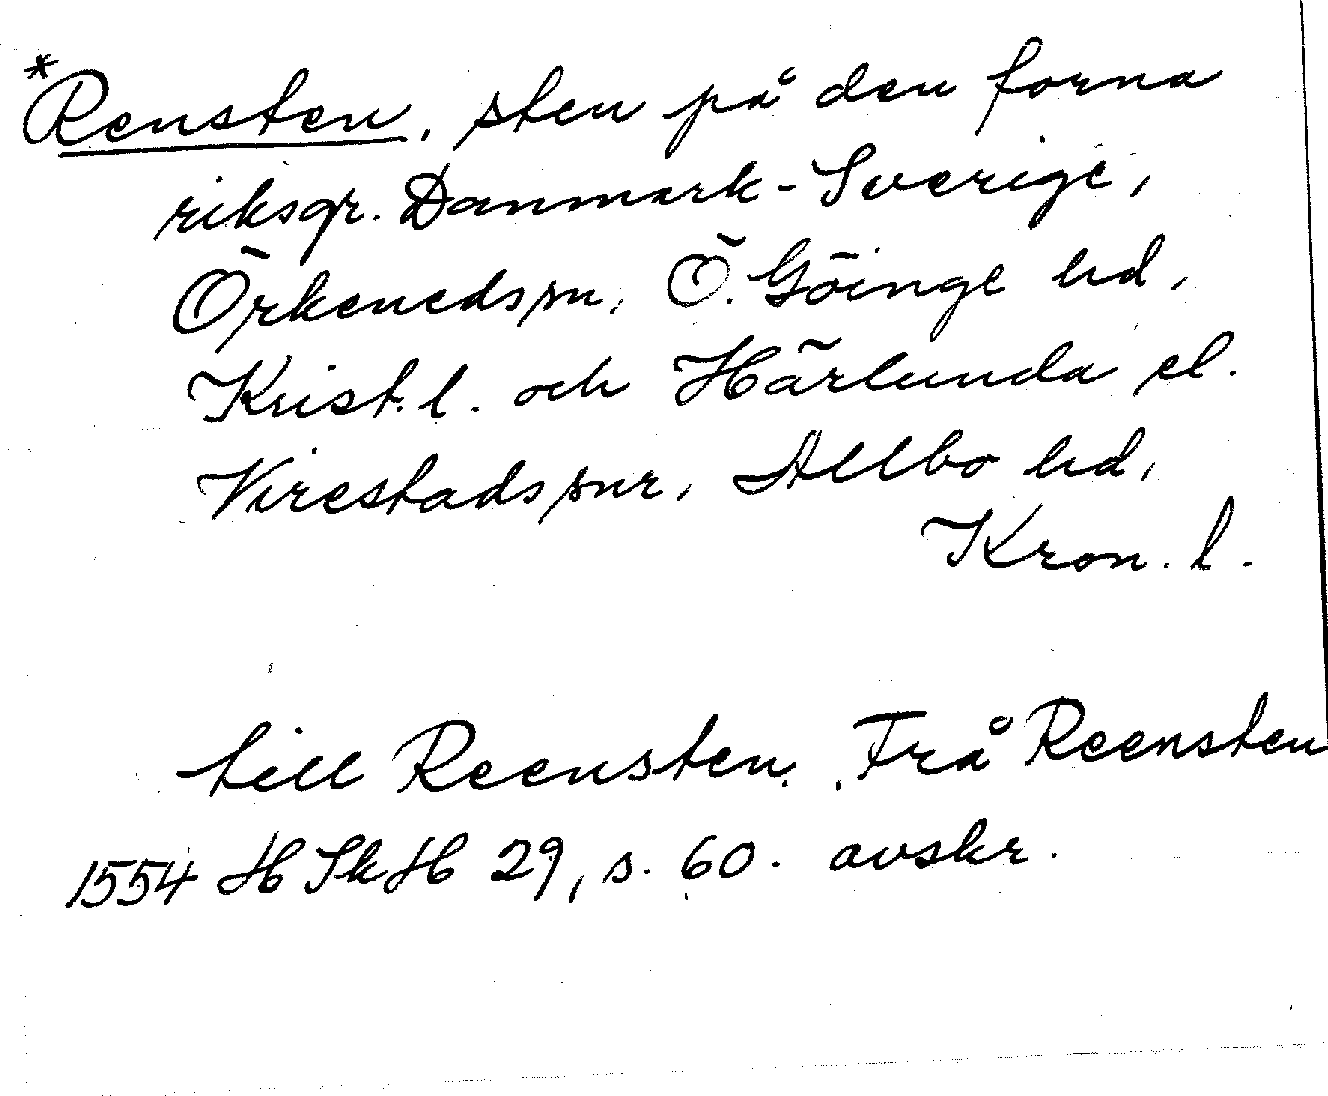 *Rensten, sten på den forna
riksgr. Danmark-Sverige,
Örkeneds sn, Ö. Göinge hd,
Krist. l. och Härlunda el.
Virestads snr, Allbo hd,
Kron. l.
till Reensten. Frå Reensten
1554 HSkH 29, s. 60. avskr.